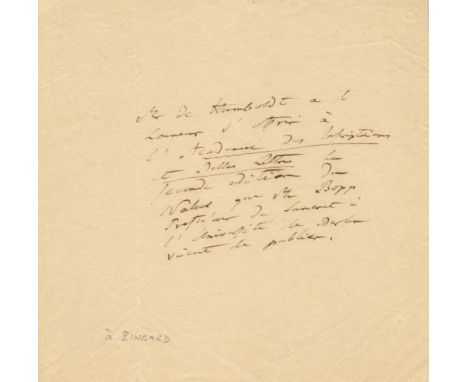 Mr de Humboldt a l
honneur d'offrir à
l'Academie des Inscriptions
et Belles Lettres la
seconde edition du
Nalus que Mr Bopp
Professeur de Sanscrit à
l'Université de Berlin
vient de publier.
à PINGARD